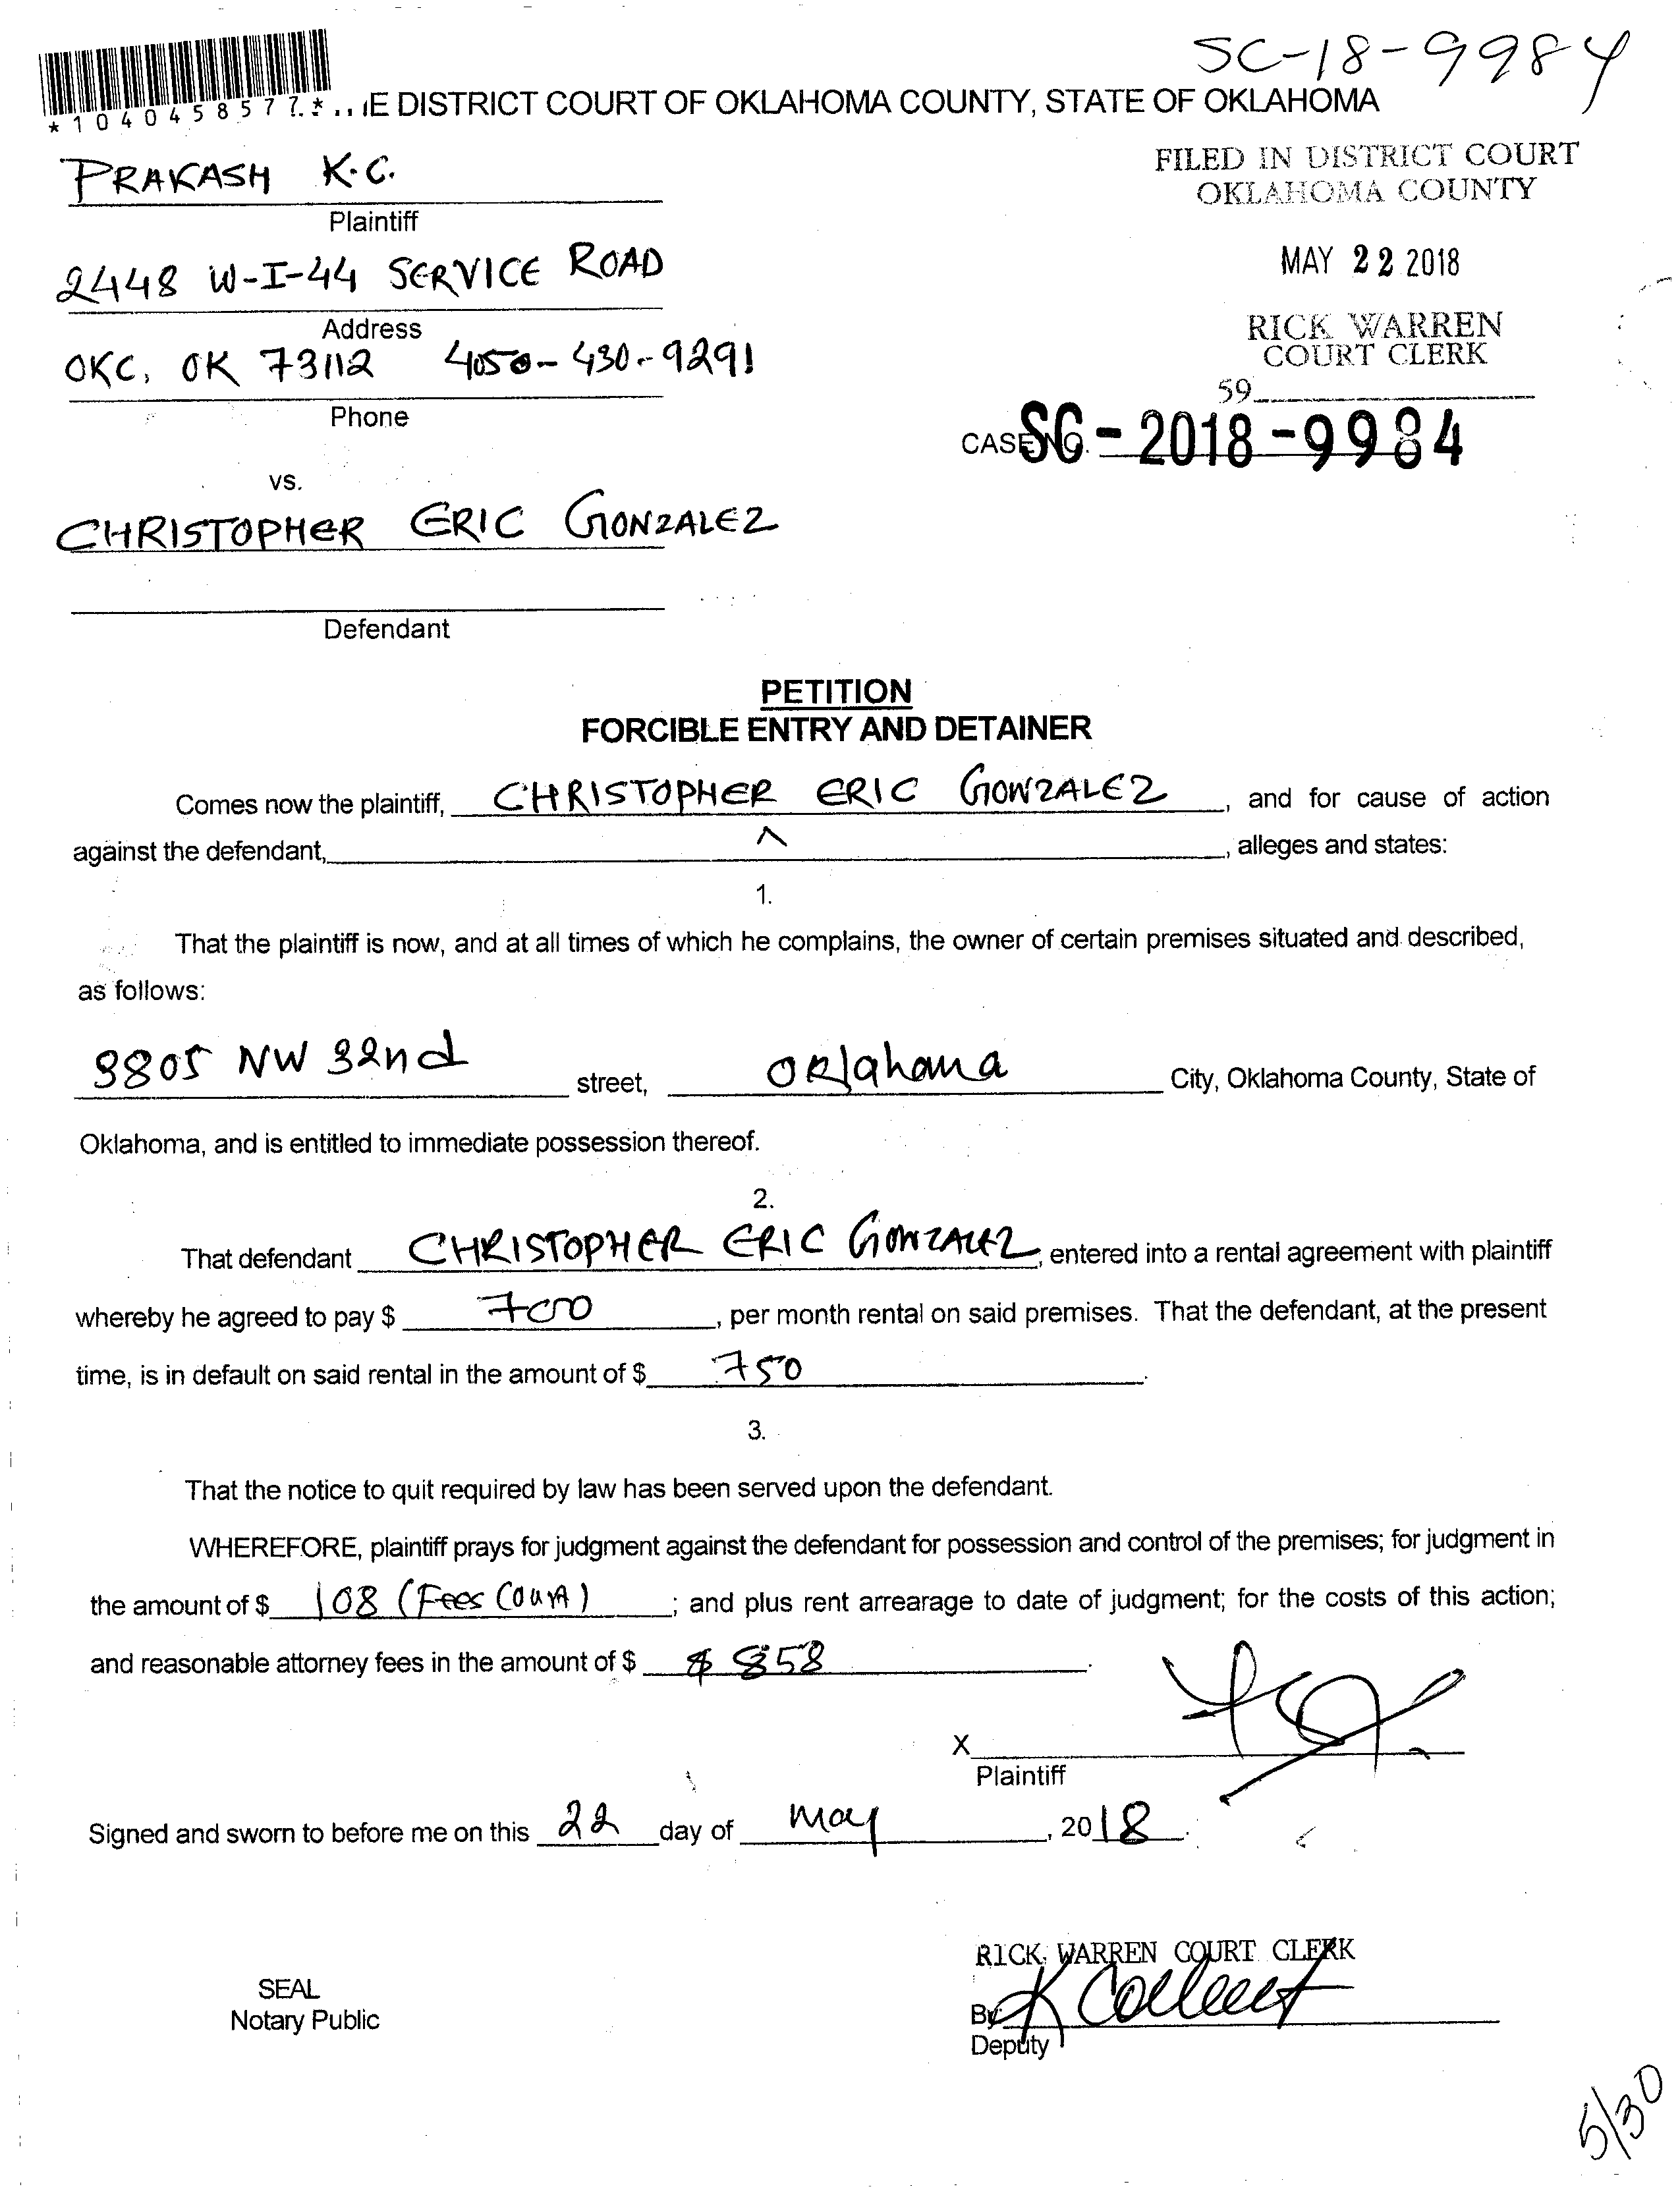 SC-18-9984
*1040458577.* ..IE DISTRICT COURT OF OKLAHOMA COUNTY, STATE OF OKLAHOMA
PRAKASH K.C.
Plaintiff
FILED IN DISTRICT COURT
OKLAHOMA COUNTY
2448 W-I-44 SERVICE ROAD
Address
MAY 22 2018
OKC, OK 73112 4050-430-9291
Phone
RICK WARREN
COURT CLERK
59
CASE NO. SC-2018-9984
vs.
CHRISTOPHER ERIC GONZALEZ
Defendant
PETITION
FORCIBLE ENTRY AND DETAINER
Comes now the plaintiff, CHRISTOPHER ERIC GONZALEZ, and for cause of action
against the defendant, ^, alleges and states:
1.
That the plaintiff is now, and at all times of which he complains, the owner of certain premises situated and described,
as follows:
3805 NW 32nd street, Oklahoma City, Oklahoma County, State of
Oklahoma, and is entitled to immediate possession thereof.
2.
That defendant CHRISTOPHER ERIC GONZALEZ, entered into a rental agreement with plaintiff
whereby he agreed to pay $ 700, per month rental on said premises. That the defendant, at the present
time, is in default on said rental in the amount of $ 750.
3.
That the notice to quit required by law has been served upon the defendant.
WHEREFORE, plaintiff prays for judgment against the defendant for possession and control of the premises; for judgment in
the amount of $ 108 (Fees Court); and plus rent arrearage to date of judgment; for the costs of this action;
and reasonable attorney fees in the amount of $ $ 858.
X
Plaintiff
Signed and sworn to before me on this 22 day of May, 2018.
RICK WARREN COURT CLERK
SEAL
Notary Public
By K
Deputy
5/30